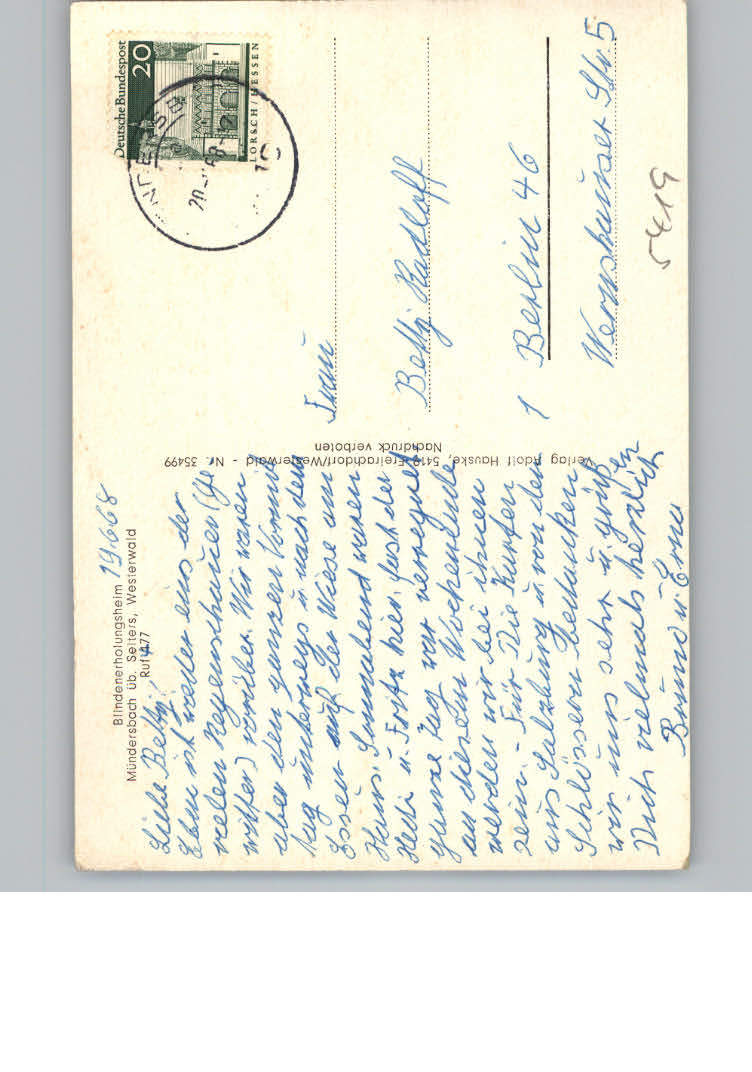 Blindenerholungsheim
Mündersbach üb. Selters, Westerwald
Ruf 477
19.6.68
Liebe Betty!
Eben ist wieder eins der
vielen Regenschauer (Ge-
witter) vorüber. Wir waren
aber den ganzen Vormit-
tag unterwegs u. nach dem
Essen auf der Wiese am
Haus. Sonnabend waren
Hedi u. Fritz hier, fast der
ganze Tag war verregnet
an diesem Wochenende
werden wir bei ihnen
sein. - Für Die Karten
aus Salzburg u. von den
Schlössern bedanken
wir uns sehr u. grüßen
Dich vielmals herzlich
Bruno u. Erna
Verlag Adolf Hauske, 5419 Freirachdorf/Westerwald - Nr. 35499
Nachdruck verboten
Deutsche Bundespost
20
LORSCH/HESSEN
20.-6.68-12
Frau
Betty Radloff
1 Berlin 46
Wernshauser Str. 5
5419